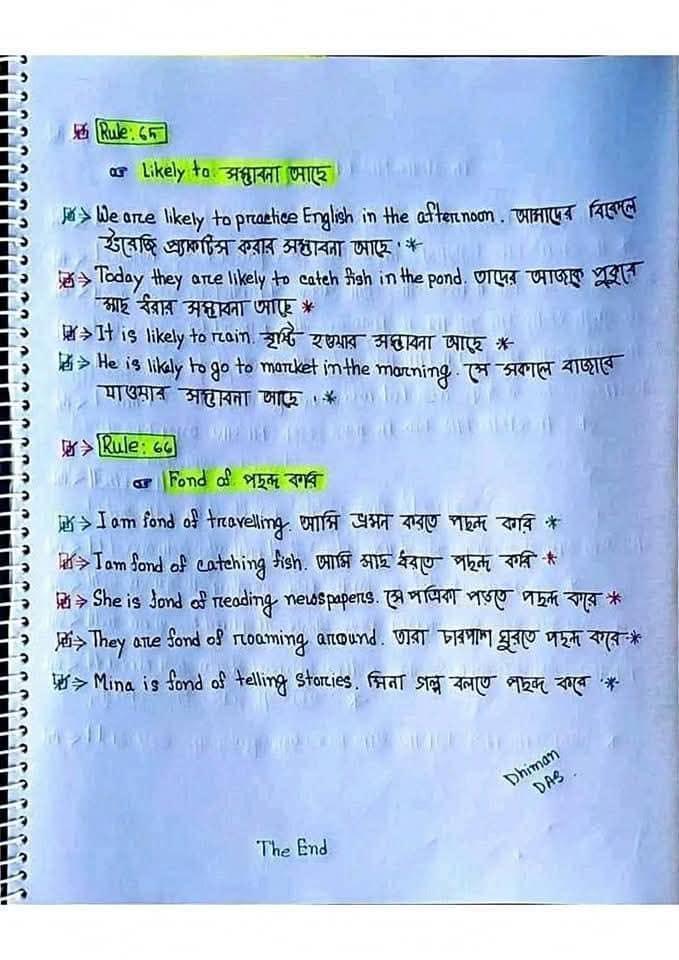 Rule: 65
Likely to সম্ভাবনা আছে
We are likely to practice English in the afternoon. আমাদের বিকেলে
ইংরেজি প্র্যাকটিস করার সম্ভাবনা আছে।
Today they are likely to catch fish in the pond. তাদের আজকে পুকুরে
মাছ ধরার সম্ভাবনা আছে
It is likely to rain. বৃষ্টি হওয়ার সম্ভাবনা আছে
He is likely to go to market in the morning. সে সকালে বাজারে
যাওয়ার সম্ভাবনা আছে।
Rule: 66
Fond of পছন্দ করি
I am fond of travelling. আমি ভ্রমন করতে পছন্দ করি
I am fond of catching fish. আমি মাছ ধরতে পছন্দ করি
She is fond of reading newspapers. সে পত্রিকা পড়তে পছন্দ করে
They are fond of roaming around. তারা চারপাশ ঘুরতে পছন্দ করে
Mina is fond of telling stories. মিনা গল্প বলতে পছন্দ করে
Dhiman
DAS.
The End